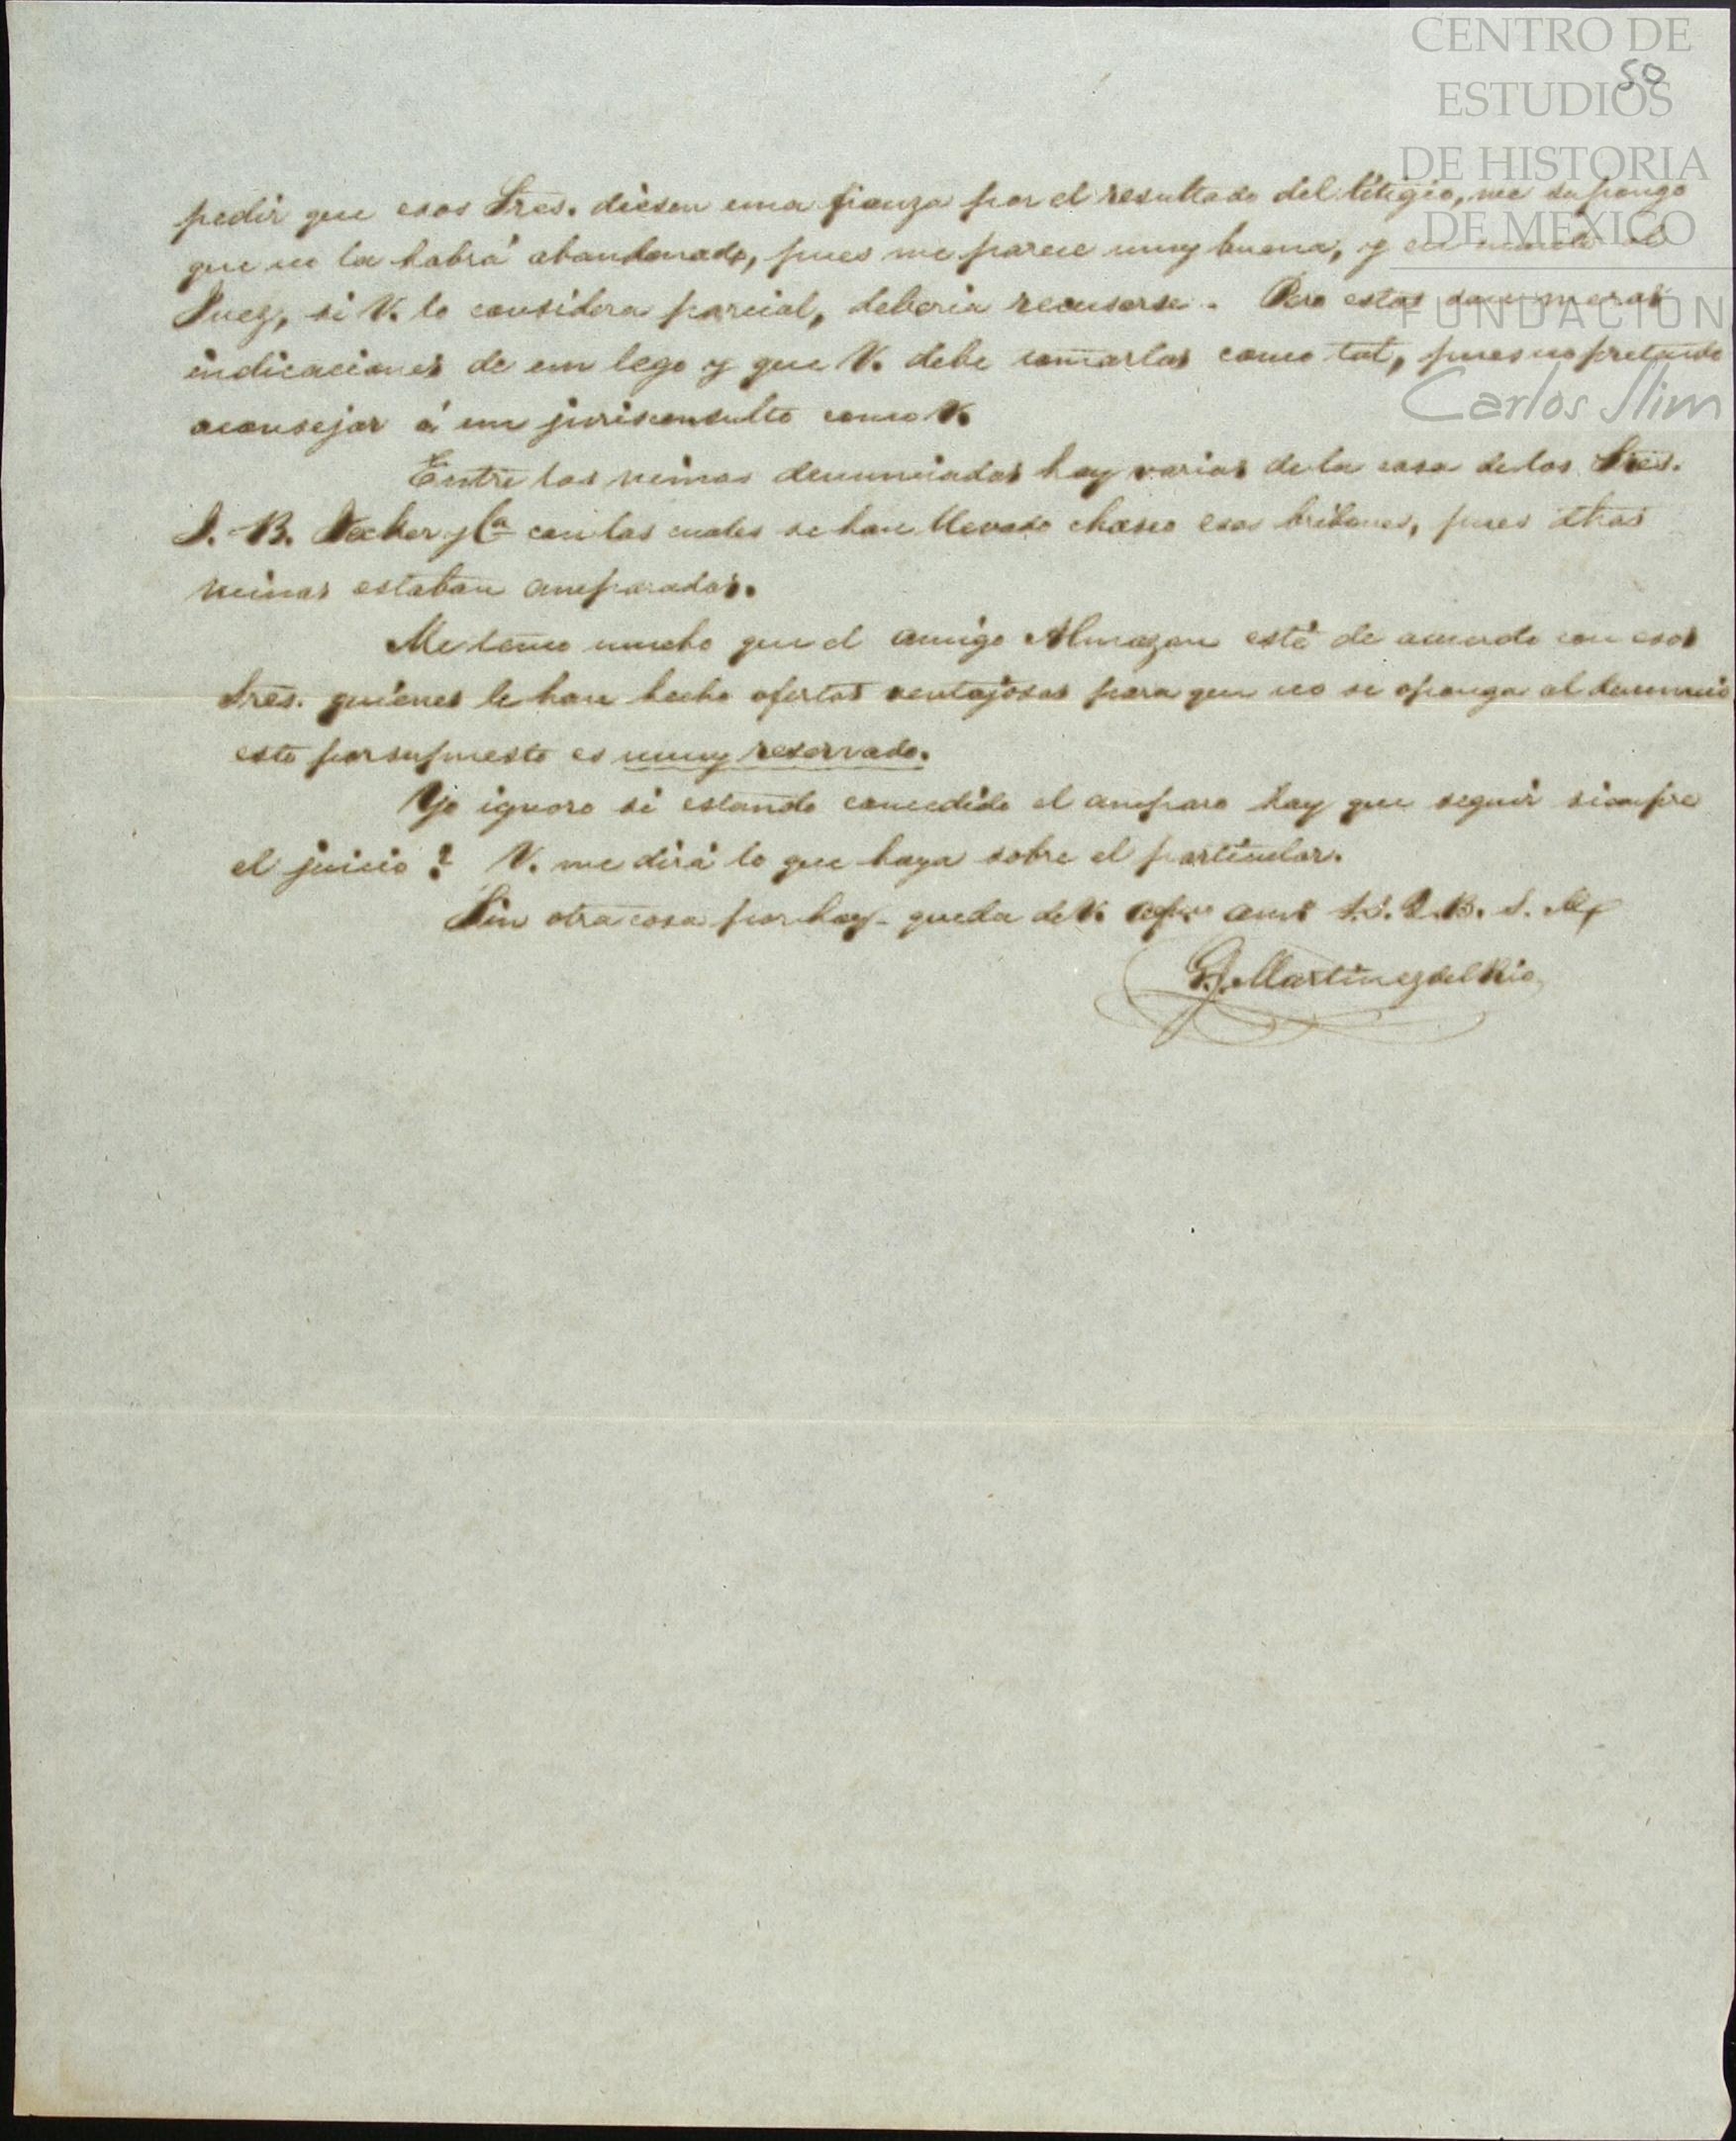 CENTRO DE
ESTUDIOS
DE HISTORIA
DE MEXICO
FUNDACION
Carlos Slim
50
pedir que esos Sres. diesen una fianza por el resultado del litigio, me supongo
que no la habrá abandonado, pues me parece muy buena, y en cuanto al
Juez, si V. lo considera parcial, deberia recusarse. Pero estas son meras
indicaciones de un lego y que V. debe tomarlas como tal, pues no pretendo
aconsejar á un jurisconsulto como V.
Entre las minas denunciadas hay varias de la casa de los Sres.
J. B. Jecker y Ca con las cuales se han llevado chasco esos bribones, pues dhas
minas estaban amparadas.
Me temo mucho que el amigo Almazan esté de acuerdo con esos
Sres. quienes le han hecho ofertas ventajosas para que no se oponga al denuncio
esto por supuesto es muy reservado.
Yo ignoro si estando concedido el amparo hay que seguir siempre
el juicio? V. me dirá lo que haya sobre el particular.
Sin otra cosa por hoy queda de V. afmo amo S.S.Q.B.S.M.
Martinez del Rio